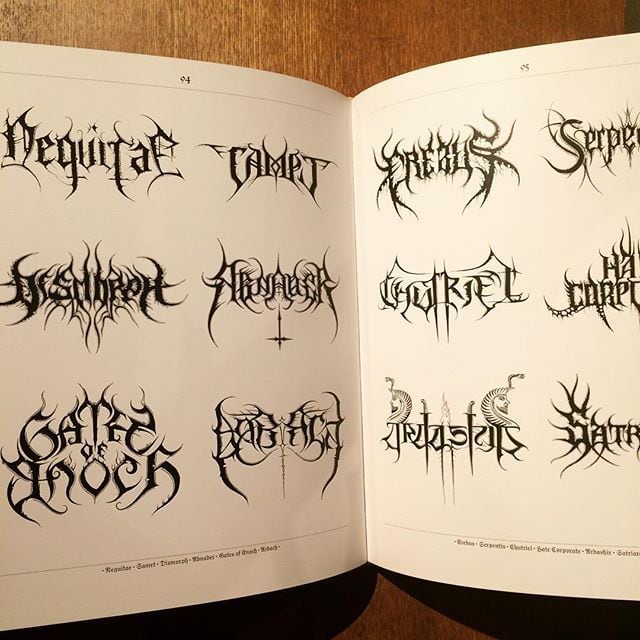 94
Nequitae
Dismorph
Abnader
Gates
of
Enoch
Nequitae · Dismorph · Abnader · Gates of Enoch
95
Erebus
Serpe
Chutriel
Ha
Corpu
Ardashir
Satr
Erebus · Serpentis · Chutriel · Hate Corporate · Ardashir